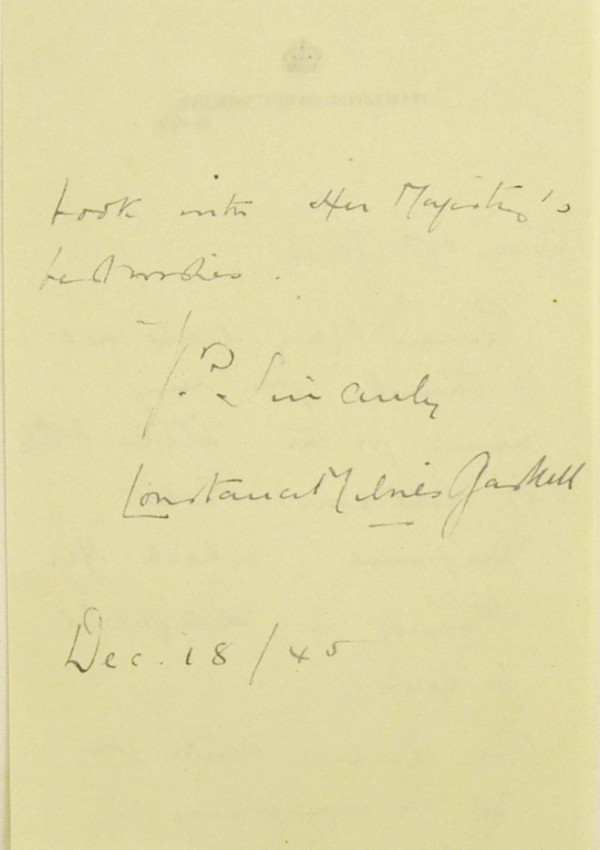 book with Her Majesty's
best wishes.
Yrs. Sincerely
Constance Milnes Gaskell
Dec. 18/45